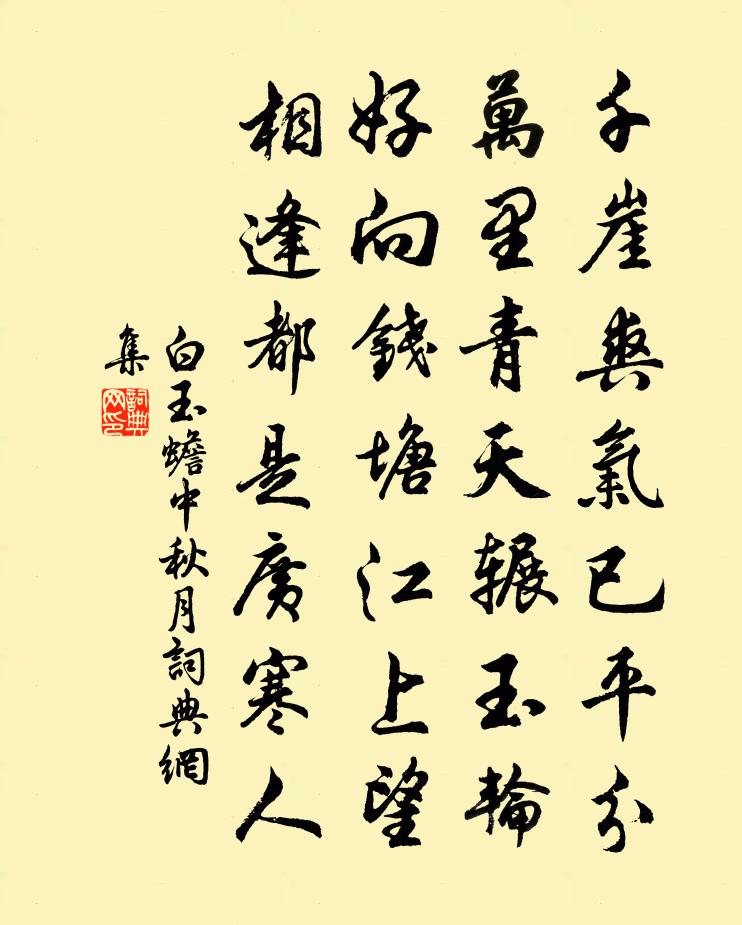 千崖爽氣已平分
萬里青天輾玉輪
好向錢塘江上望
相逢都是廣寒人
白玉蟾中秋月詞典網
集
詞典
网印